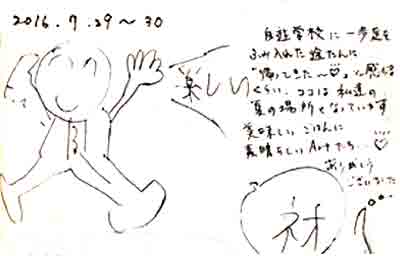 2016.7.29～30
楽しい
自遊学校に一歩足を
ふみ入れた途たんに
"帰ってきた～♡"と感じる
くらい、ココは私達の
夏の場所となっています
美味しいごはんに
素晴らしいArtたち…♡
ありがとう
ございました
ネオ